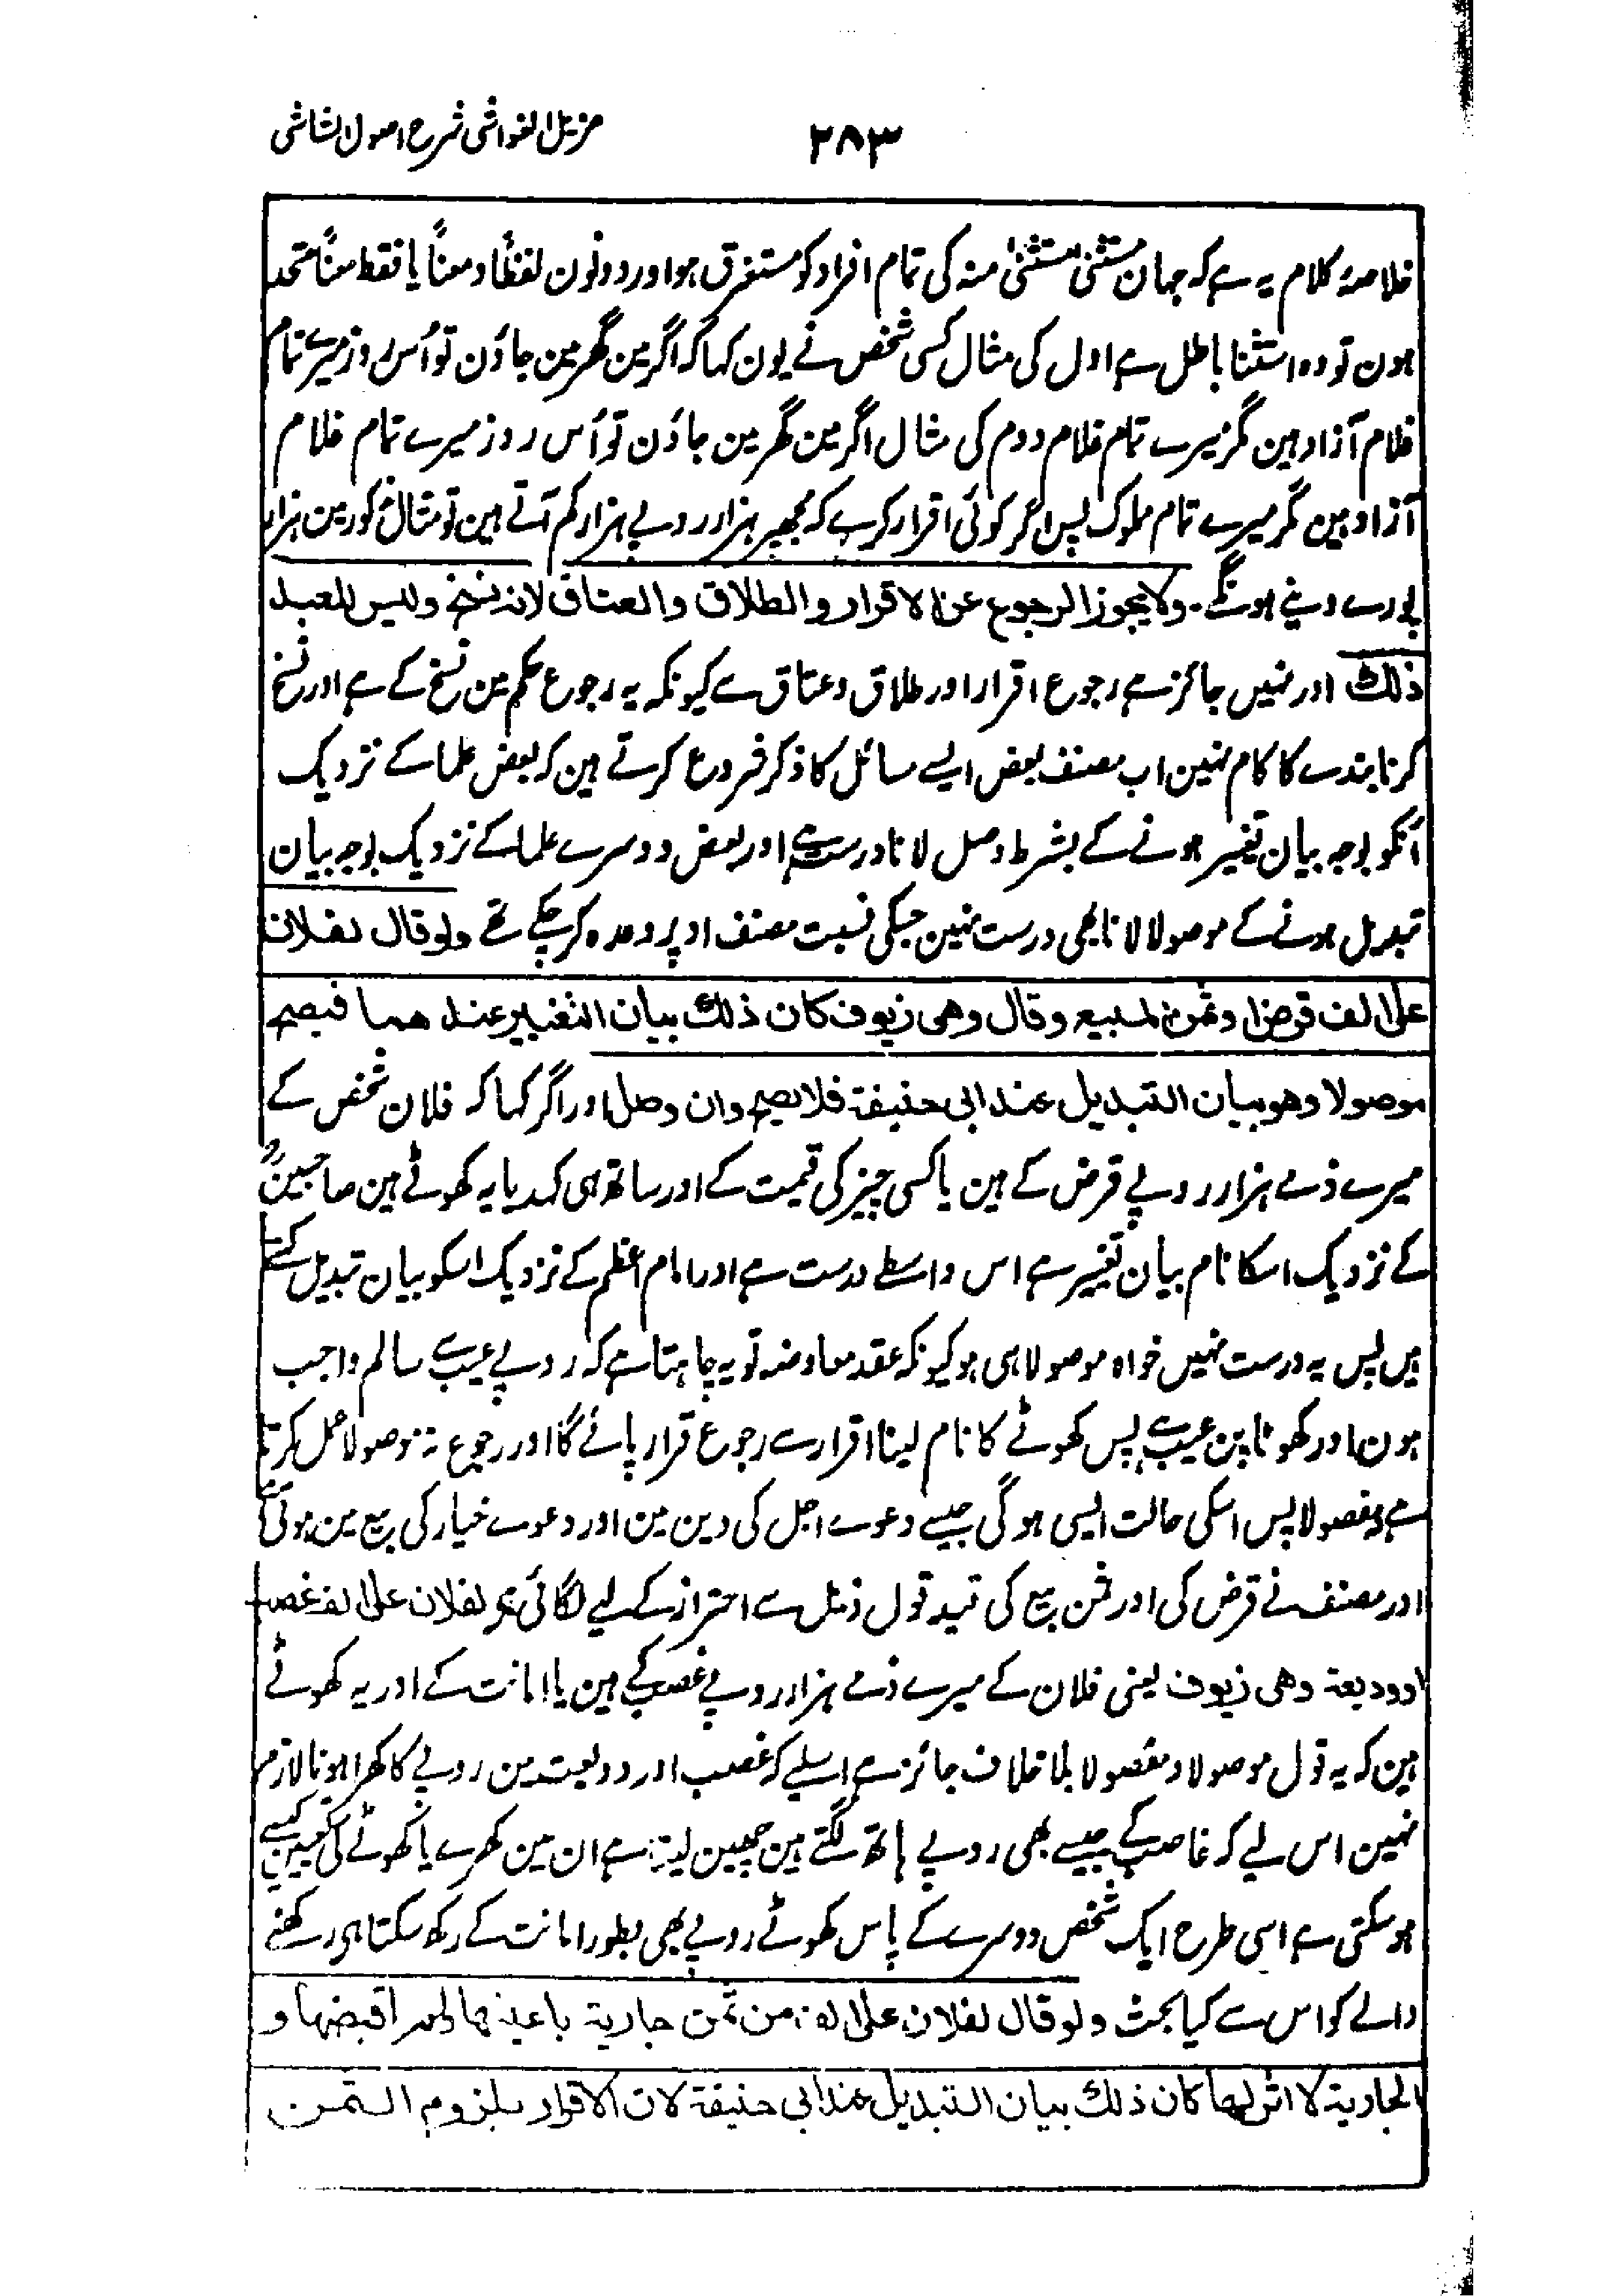 مزیل الغواشی شرح اصول الشاشی
۲۸۳
خلاصۂ کلام یہ ہے کہ جہان مستثنیٰ مستثنیٰ منہ کی تمام افراد کو مستغرق ہو اور دونون لفظًا و معنًا یا فقط معنًا متحد
ہون تو وہ استثنا باطل ہے اول کی مثال کسی شخص نے یون کہا کہ اگر مین گھر مین جاؤن تو اُس روز میرے تمام
غلام آزاد ہین مگر میرے تمام غلام دوم کی مثال اگر مین گھر مین جاؤن تو اُس روز میرے تمام غلام
آزاد ہین مگر میرے تمام مملوک پس اگر کوئی اقرار کرے کہ مجھپر ہزار روپے ہزار کم آتے ہین تو مثال مذکور مین ہزار
پورے دینے ہونگے۔ ولا یجوز الرجوع عن الاقرار والطلاق والعتاق لانہ نسخ ولیس للعبد
ذلک اور نہیں جائز ہے رجوع اقرار اور طلاق و عتاق سے کیونکہ یہ رجوع حکم مین نسخ کے ہے اور نسخ
کرنا بندے کا کام نہین اب مصنف بعض ایسے مسائل کا ذکر شروع کرتے ہین کہ بعض علما کے نزدیک
اُنکو بوجہ بیان تغییر ہونے کے بشرط وصل لانا درست ہے اور بعض دوسرے علما کے نزدیک بوجہ بیان
تبدیل ہونے کے موصولا لانا بھی درست نہین جسکی نسبت مصنف اوپر وعدہ کر چکے تھے ولو قال لفلان
علی الف قرض او ثمن المبیع وقال وھی زیوف کان ذلک بیان التغییر عندھما فیصح
موصولا وھو بیان التبدیل عند ابی حنیفۃ فلا یصح وان وصل اور اگر کہا کہ فلان شخص کے
میرے ذمے ہزار روپے قرض کے ہین یا کسی چیز کی قیمت کے اور ساتھ ہی کہدیا یہ کھوٹے ہین صاحبینؒ
کے نزدیک اسکا نام بیان تغییر ہے اس واسطے درست ہے اور امام اعظم کے نزدیک اسکو بیان تبدیل کہتے
ہیں پس یہ درست نہیں خواہ موصولا ہی ہو کیونکہ عقد معاوضہ تو یہ چاہتا ہے کہ روپے عیب سے سالم واجب
ہون اور کھوٹا پن عیب ہے پس کھوٹے کا نام لینا اقرار سے رجوع قرار پائے گا اور رجوع نہ موصولا عمل کرتا
ہے نہ مفصولا پس اسکی حالت ایسی ہوگی جیسے دعوے اجل کی دین مین اور دعوے خیار کی بیع مین ہوتی ہے
اور مصنف نے قرض کی اور ثمن بیع کی قید قول ذیل سے احتراز کے لیے لگائی ہے لفلان علی الف غصب
او ودیعۃ وھی زیوف یعنی فلان کے میرے ذمے ہزار روپے غصب کے ہین یا امانت کے اور یہ کھوٹے
ہین کہ یہ قول موصولا و مفصولا بلا خلاف جائز ہے اسلیے کہ غصب اور ودیعت مین روپے کا کھرا ہونا لازم
نہین اس لیے کہ غاصب کے جیسے بھی روپے ہاتھ لگتے ہین چھین لیتا ہے ان مین کھرے یا کھوٹے کی تمیز کیسے
ہو سکتی ہے اسی طرح ایک شخص دوسرے کے پاس کھوٹے روپے بھی بطور امانت کے رکھ سکتا ہی رکھنے
والے کو اس سے کیا بحث ولو قال لفلان علی الف من ثمن جاریۃ باعنیھا ولم اقبضھا و
الجاریۃ لا اثر لھا کان ذلک بیان التبدیل عند ابی حنیفۃ لان الاقرار بلزوم الثمن